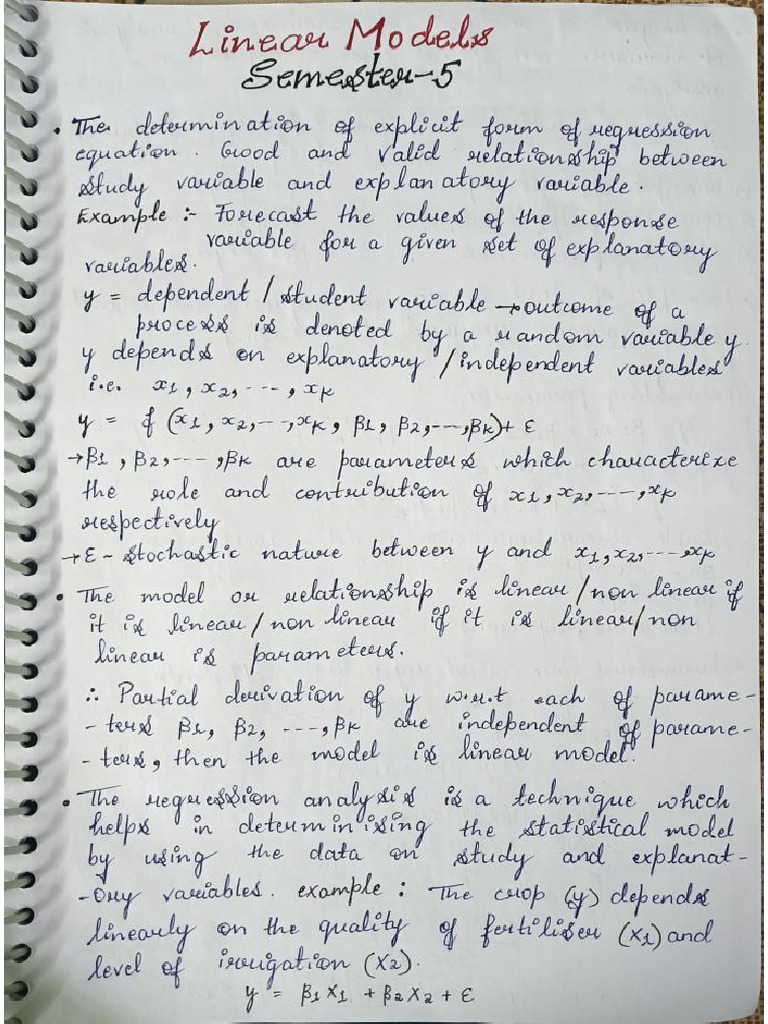 Linear Models
Semester-5
• The determination of explicit form of regression
equation. Good and valid relationship between
study variable and explanatory variable.
Example :- Forecast the values of the response
variable for a given set of explanatory
variables.
y = dependent / student variable → outcome of a
process is denoted by a random variable y.
y depends on explanatory / independent variables
i.e. x1, x2, ---, xK
y = f (x1, x2, --, xK, β1, β2, --, βK) + ε
→ β1, β2, ---, βK are parameters which characterize
the role and contribution of x1, x2, ---, xK
respectively
→ ε - stochastic nature between y and x1, x2, ---, xK
• The model or relationship is linear/non linear if
it is linear/non linear if it is linear/non
linear is parameters.
∴ Partial derivation of y w.r.t each of parame-
-ters β1, β2, ---, βK are independent of parame-
-ters, then the model is linear model.
• The regression analysis is a technique which
helps in determinising the statistical model
by using the data on study and explanat-
-ory variables. example : The crop (y) depends
linearly on the quality of fertiliser (X1) and
level of irrigation (X2).
y = β1X1 + β2X2 + ε